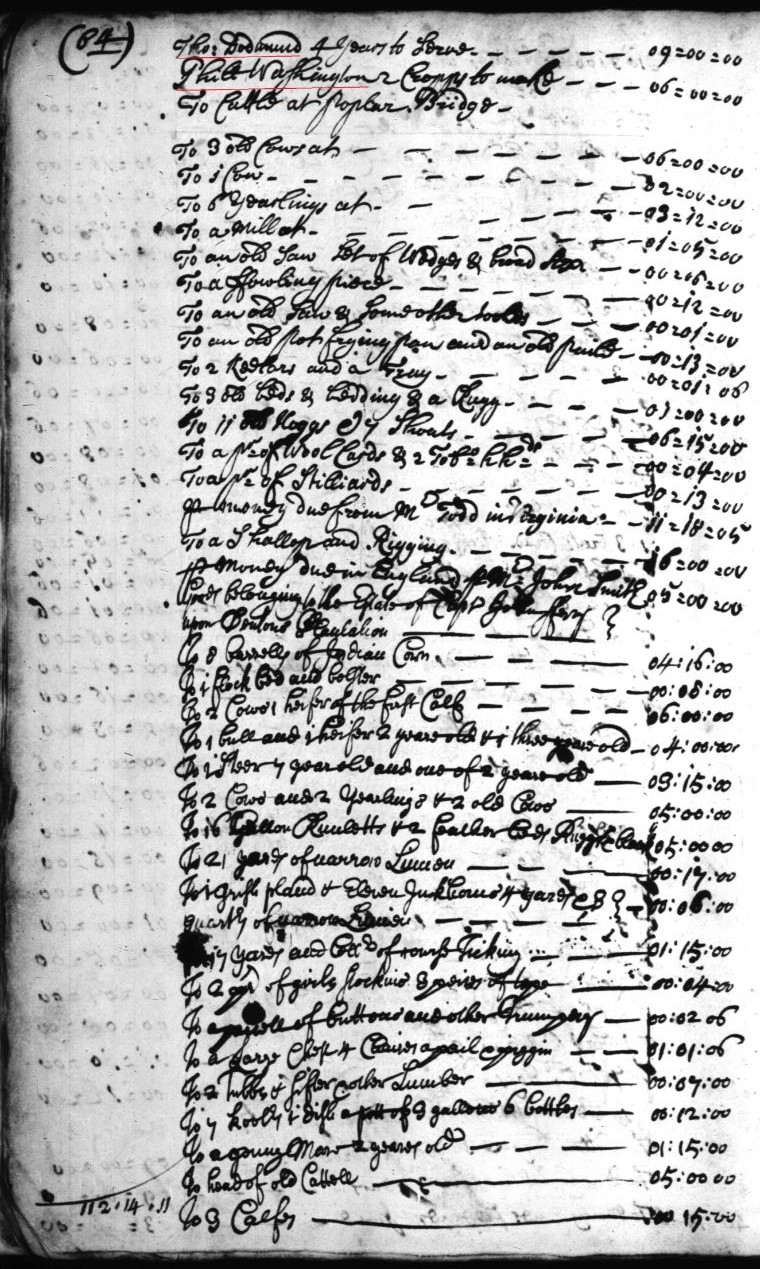 (84)
Tho: Dodmund 4 Years to Serve - 09=00=00
Phill Washington 2 Cropps to make - 06=00=00
To Cattle at Poplar Bridge -
To 3 old Cows at - 06=00=00
To 1 Cow - 02=00=00
To 6 Yearlings at - 03=12=00
To a Mill at - 01=05=00
To an old Saw Set of Wedges & - 00=06=00
To a ffowling piece - 00=12=00
To an old Saw & Some other tooles - 00=01=00
To an old Pott frying pan and an old - 00=13=00
To 2 and a Tray - 00=01=06
To 3 old beds & bedding & a Rugg - 07=00=00
To 11 old Hoggs & 7 Shoats - 06=15=00
To a pr of Wool Cards & 2 Tobo hhds - 00=04=00
To a pr of Stilliards - 00=13=00
pr money due from Mr Todd in Virginia - 11=18=05
To a Shallop and Rigging - 16=00=00
pr Money due in England pr Mr John Smith 05=00=00
belonging to the Estate of Capt
upon Plantation
To 8 barrells of Indian Corn - 04:16:00
To 1 flock bed and bolster - 00:08:00
To 2 Cows 1 heifer of the first Calfe - 06:00:00
To 1 bull and 1 heifer 2 yeare old & 1 three yeare old - 04:00:00
To 1 Steer 7 yeare old and one of 2 yeare old - 03:15:00
To 2 Cows and 2 Yearlings & 2 old Cows - 05:00:00
To 16 Gallon Runletts & 2 feather beds 05:00:00
To 21 yards of narrow Linnen - 00:17:00
To 1 plaid & Eleven & 4 yards & 3 } - 00:06:00
quarts of narrow Linnen
17 yards and of course Ticking - 01:15:00
To 2 pr of girls Stockins 3 peices of tape - 00:04:00
To a parcell of buttons and other Trumpery - 00:02:06
To a large Chest 4 Chaires a pail - 01:01:06
To 2 Tubbs & sifter & other Lumber - 00:07:00
To 7 1 dish a pott of 3 gallons 6 bottles - 00:12:00
To a young Mare 2 yeares old - 01:15:00
To head of old Cattell - 05:00:00
112:14:11
To 3 Calfes - 15:00